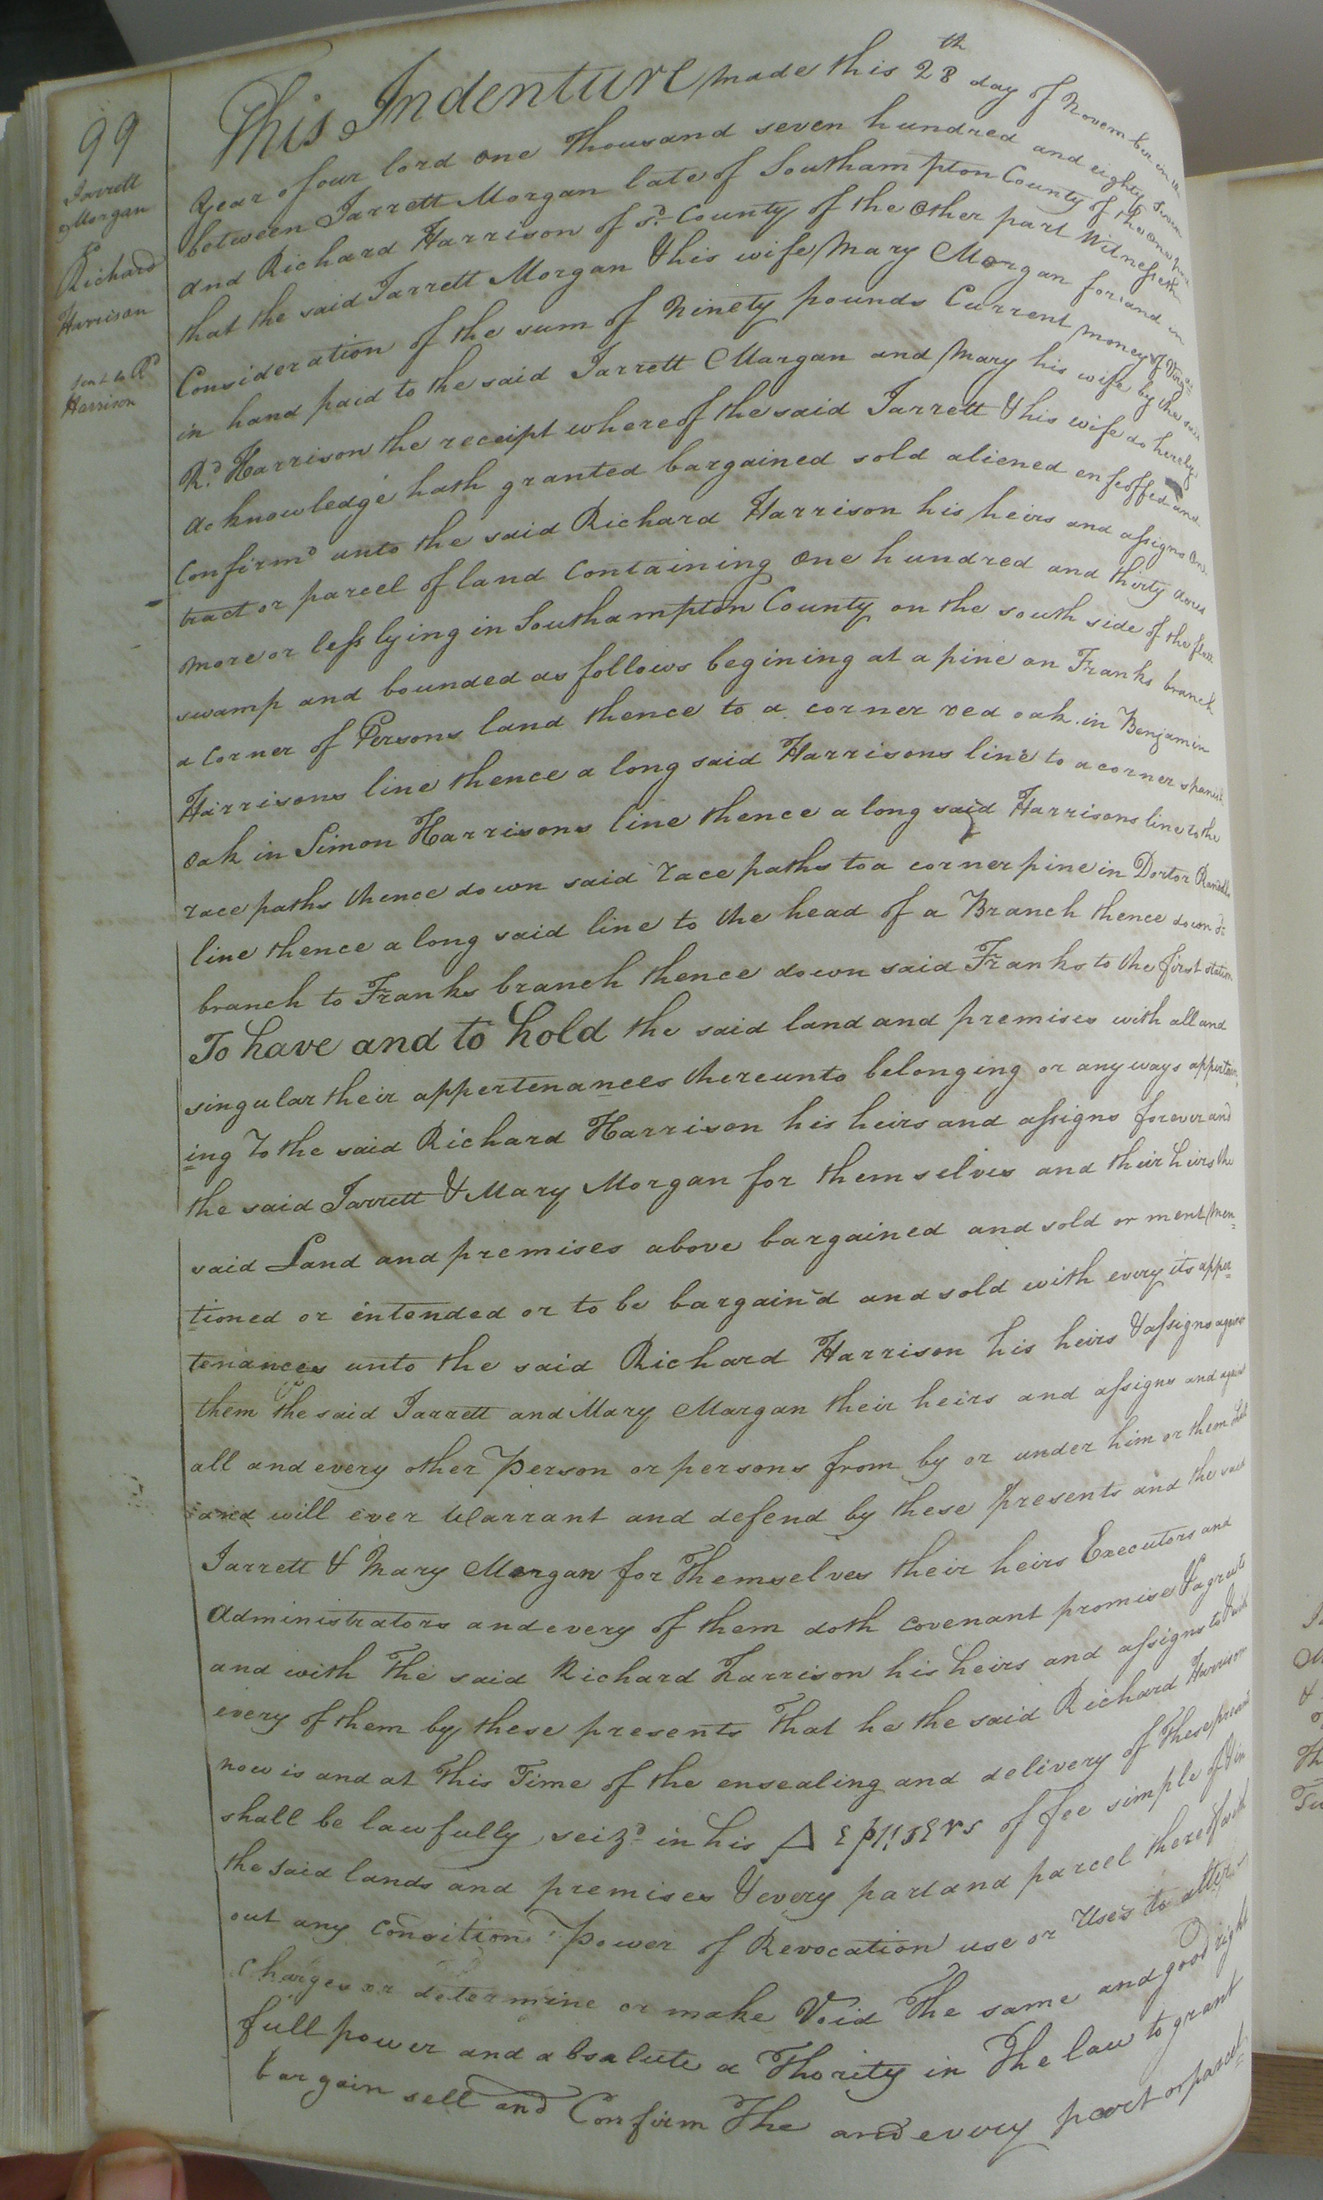 99
Jarrett
Morgan
to
Richard
Harrison
sent to Rd
Harrison
This Indenture made this 28th day of November in the
Year of our lord one thousand seven hundred and eighty seven
between Jarrett Morgan late of Southampton County of the one part
and Richard Harrison of sd County of the other part Witnesseth
that the said Jarrett Morgan & his wife Mary Morgan for and in
Consideration of the sum of Ninety pounds Current money of Virga
in hand paid to the said Jarrett Morgan and Mary his wife by the said
Rd. Harrison the receipt whereof the said Jarrett & his wife do hereby
acknowledge hath granted bargained sold aliened enfeoffed and
Confirmd unto the said Richard Harrison his heirs and assigns One
tract or parcel of land Containing One hundred and thirty acres
more or less lying in Southampton County on the south side of the
swamp and bounded as follows begining at a pine on Franks branch
a corner of Persons land thence to a corner red oak in Benjamin
Harrisons line thence a long said Harrisons line to a corner spanish
oak in Simon Harrisons line thence a long said Harrisons line to the
race paths thence down said race paths to a corner pine in Doctor
line thence a long said line to the head of a Branch thence down sd
branch to Franks branch thence down said Franks to the first station
To have and to hold the said land and premises with all and
singular their appertenances thereunto belonging or any ways appertain
ing To the said Richard Harrison his heirs and assigns forever and
the said Jarrett & Mary Morgan for themselves and their heirs the
said Land and premises above bargained and sold or ment men=
tioned or intended or to be bargain'd and sold with every its apper=
tenances unto the said Richard Harrison his heirs & assigns against
them the said Jarrett and Mary Morgan their heirs and assigns and against
all and every other Person or persons from by or under him or them shall
and will ever Warrant and defend by these presents and the said
Jarrett & Mary Morgan for Themselves their heirs Executors and
Administrators and every of them doth covenant promise & agree to
and with The said Richard Harrison his heirs and assigns to & with
every of them by these presents That he the said Richard Harrison
now is and at This Time of the ensealing and delivery of These presents
shall be lawfully seizd in his of fee simple of & in
the said lands and premises & every part and parcel thereof with
out any condition Power of Revocation use or Uses to alter
Charges or determine or make Void The same and good right
full power and absalute a Thority in The law to grant
bargain sell and Confirm The and every part or parcel